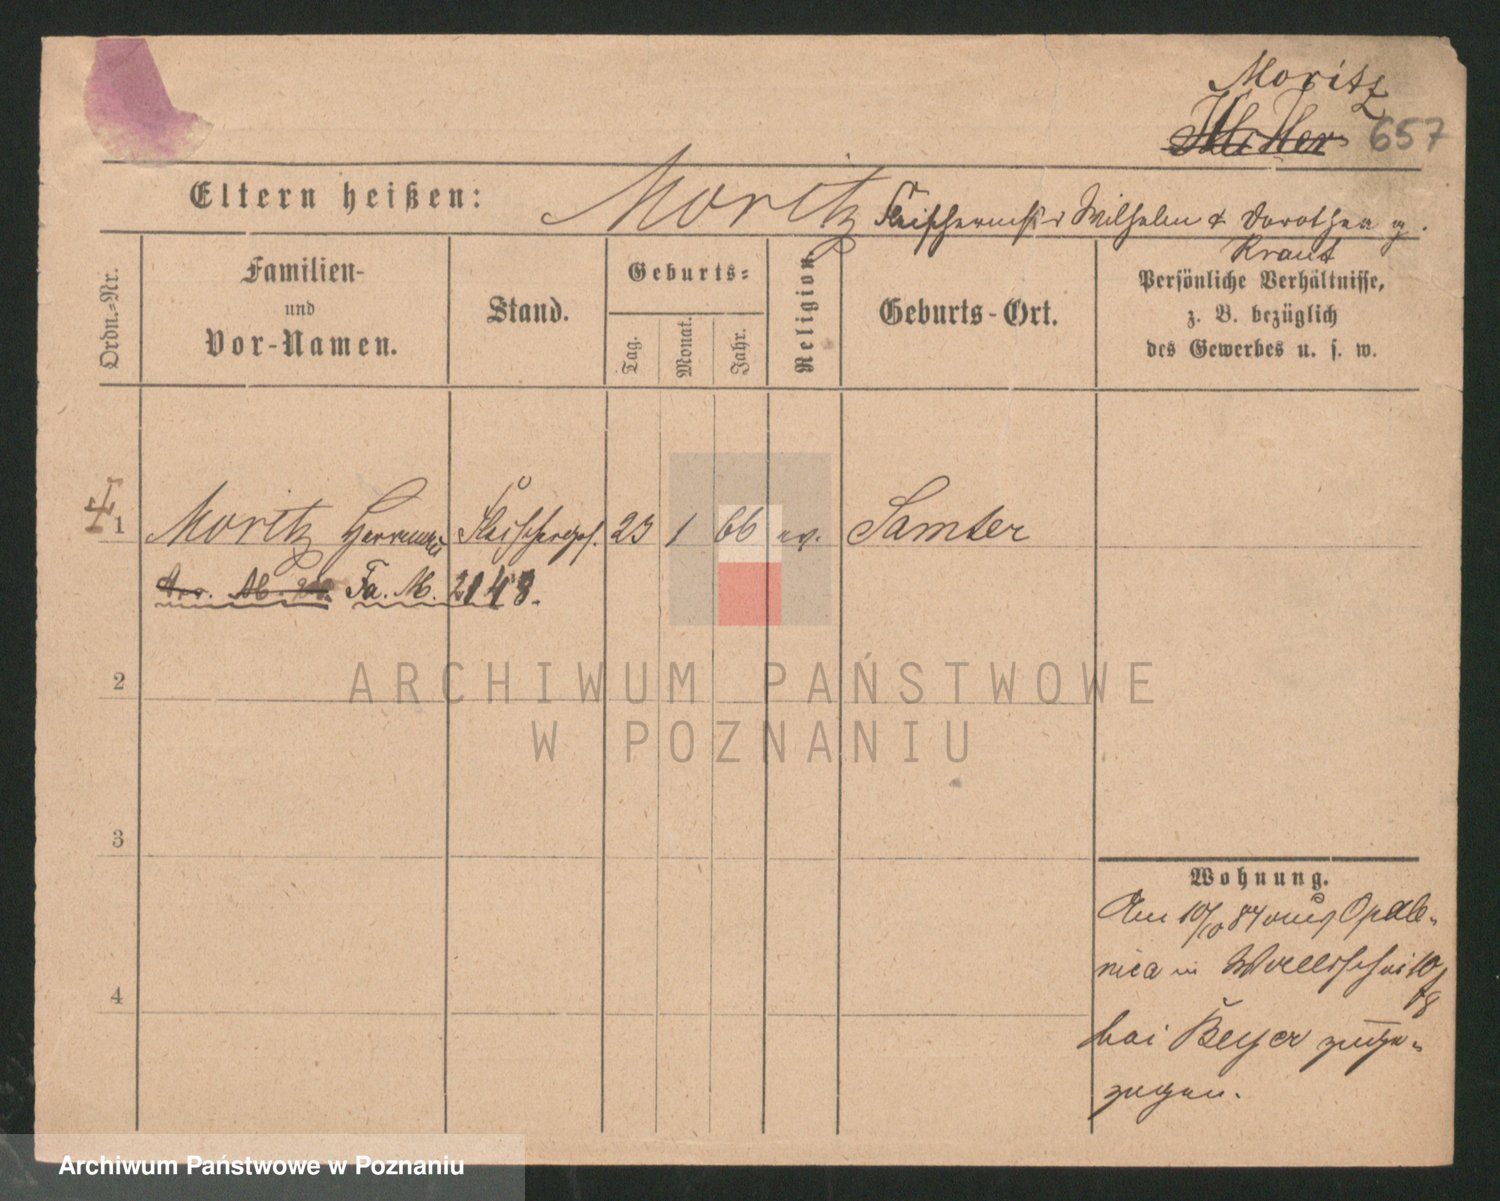 Moritz
657
Eltern heißen: Moritz Fleischermstr Wilhelm & Dorothea g.
Kraut
Ordn.-Nr.
Familien-
und
Vor-Namen.
Stand.
Geburts-
Tag.
Monat.
Jahr.
Religion.
Geburts-Ort.
Persönliche Verhältnisse,
z. B. bezüglich
des Gewerbes u. s. w.
1 Moritz Hermann Fleischerges. 23 1 66 ev. Samter
Fa. M. 2148.
2
3
4
Wohnung.
Am 10/10 84 aus Opale-
nica in Wallischei 10/
bei Beyer zuge-
zogen.
ARCHIWUM PAŃSTWOWE
W POZNANIU
Archiwum Państwowe w Poznaniu